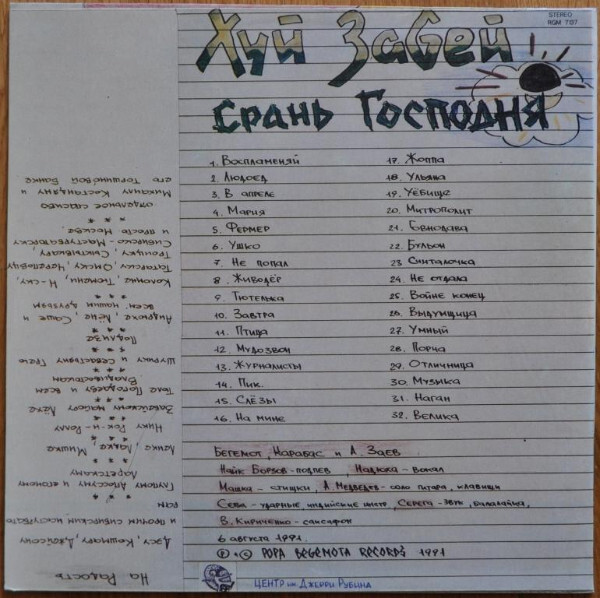 STEREO
RGM 7107
Хуй Забей
Срань Господня
1. Воспламеняй
2. Людоед
3. В апреле
4. Мария
5. Фермер
6. Ушко
7. Не попал
8. Живодёр
9. Тютелька
10. Завтра
11. Птица
12. Мудозвон
13. Журналисты
14. Пик.
15. Слёзы
16. На мине
17. Жоппа
18. Ульяна
19. Уёбище
20. Митрополит
21. Говнодава
22. Бульон
23. Синталочка
24. Не отдала
25. Войне конец
26. Выдумщица
27. Умный
28. Порча
29. Отличница
30. Музыка
31. Наган
32. Велика
Бегемот, Карабас и А. Заев
Найк Борзов - подпев, Надюха - вокал
Машка - стишки, А. Медведев - соло гитара, клавиши
Сева - ударные индийские инстр, Серега - звук, балалайка,
В. Кириченко - саксафон
6 августа 1991.
℗ © POPA BEGEMOTA RECORDS 1991
ЦЕНТР им Джерри Рубина
На Радость
Дэсу, Кошмару, Джойсону
и прочим сибирским мастурбато
рам
* * *
Глупому и егоному
* * *
Лавке, Мишке
* * *
Нику Рок-н-Роллу
* * *
майору Лёхе
* * *
Толе Погодаеву и всем
* * *
Шурику и Севастьяну Грею
* * *
Подлизе
* * *
Андрюхе, Лёне, Саше и
всем нашим друзьям
* * *
Тюмени, Н-ску,
Татарску, Омску, Череповцу
Троицку, Сыктывкару
Сибирско-Мастурбаторску
и просто Москве.
* * *
отдельное спасибо
Михаилу Костандяну и
его Торшиновой Банке